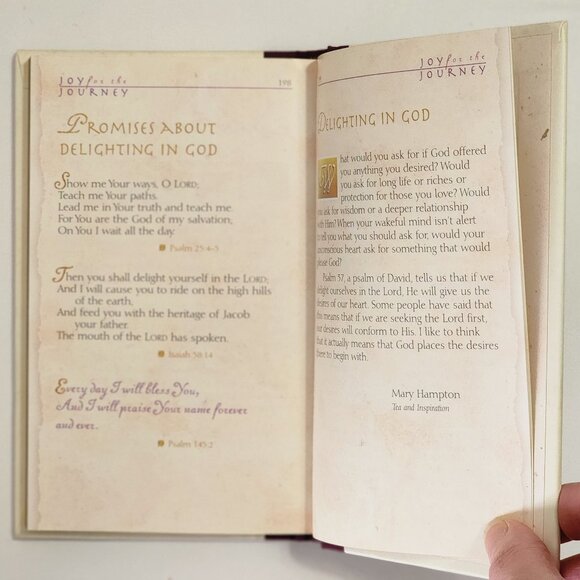 JOY for the
JOURNEY
198
PROMISES ABOUT
DELIGHTING IN GOD
Show me Your ways, O LORD;
Teach me Your paths.
Lead me in Your truth and teach me.
For You are the God of my salvation;
On You I wait all the day.
Psalm 25:4-5
Then you shall delight yourself in the LORD;
And I will cause you to ride on the high hills
of the earth,
And feed you with the heritage of Jacob
your father.
The mouth of the LORD has spoken.
Isaiah 58:14
Every day I will bless You,
And I will praise Your name forever
and ever.
Psalm 145:2
JOY for the
JOURNEY
DELIGHTING IN GOD
What would you ask for if God offered
you anything you desired? Would
you ask for long life or riches or
protection for those you love? Would
you ask for wisdom or a deeper relationship
with Him? When your wakeful mind isn't alert
to tell you what you should ask for, would your
unconscious heart ask for something that would
please God?
Psalm 37, a psalm of David, tells us that if we
delight ourselves in the Lord, He will give us the
desires of our heart. Some people have said that
this means that if we are seeking the Lord first,
our desires will conform to His. I like to think
that it actually means that God places the desires
there to begin with.
Mary Hampton
Tea and Inspiration